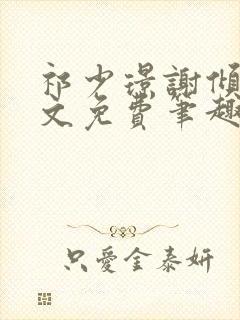 祁少璟謝傾
文免費筆趣
只愛金泰妍